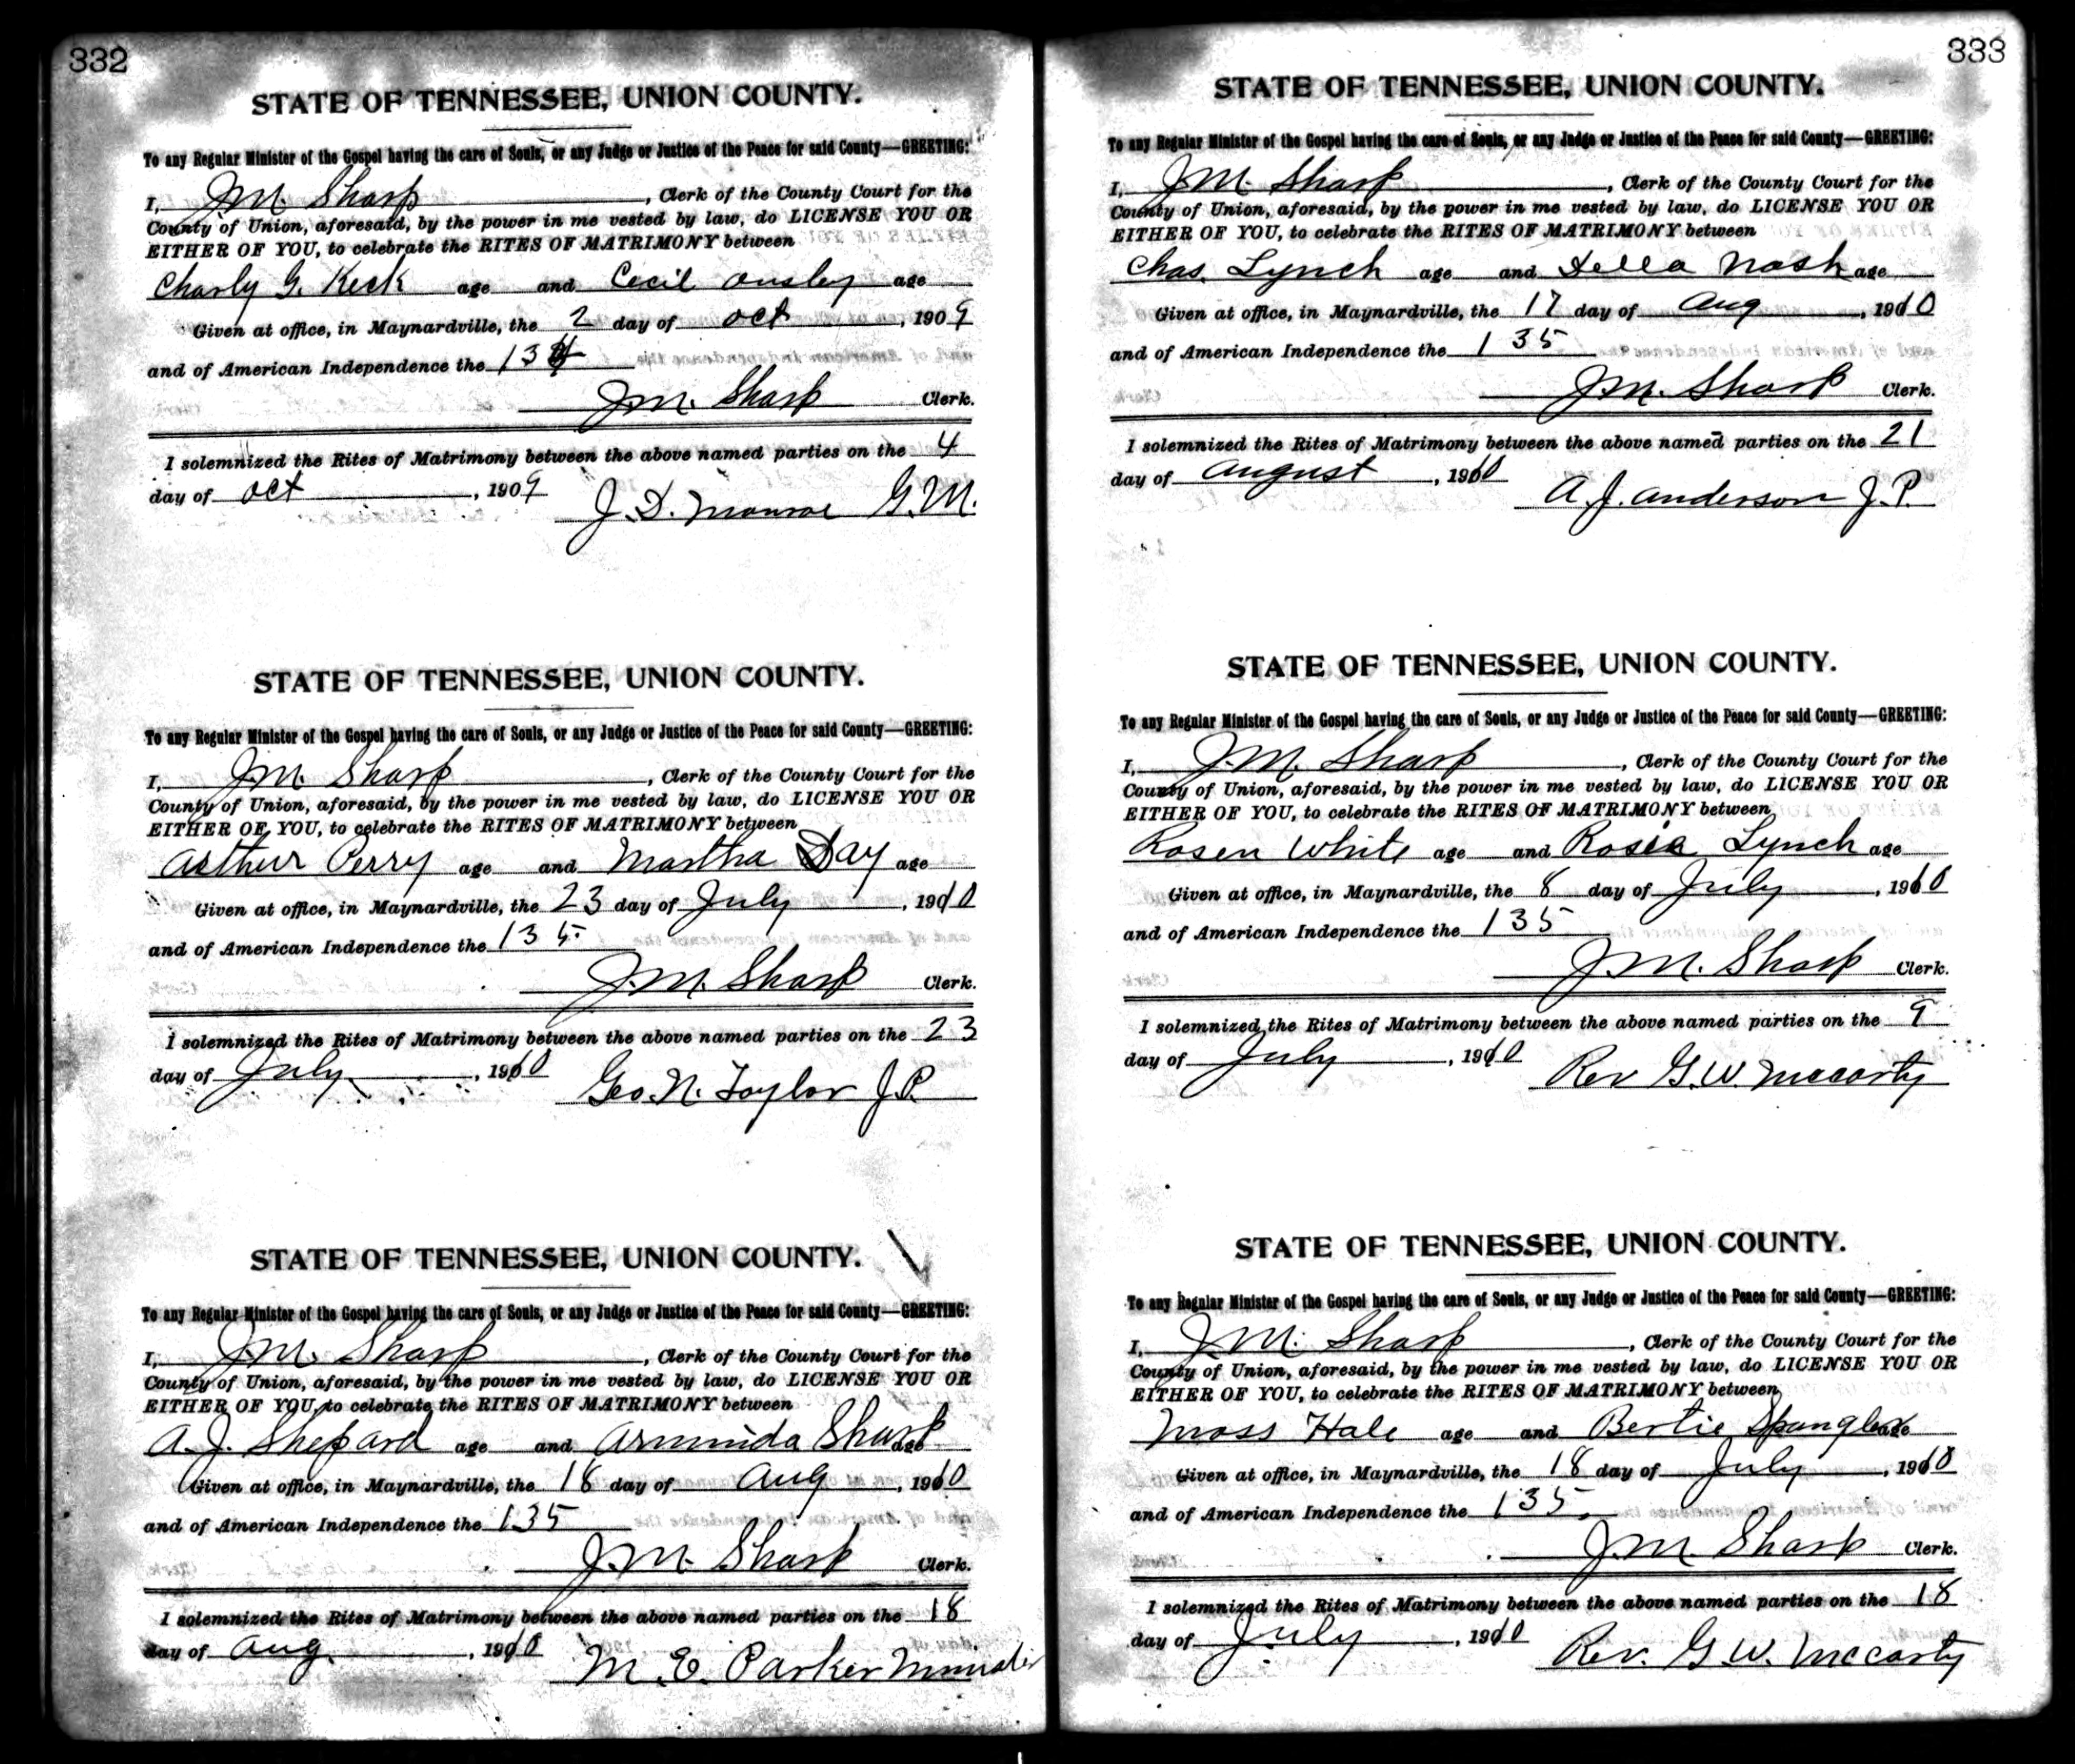 332
STATE OF TENNESSEE, UNION COUNTY.
To any Regular Minister of the Gospel having the care of Souls, or any Judge or Justice of the Peace for said County—GREETING:
I, J.M. Sharp, Clerk of the County Court for the
County of Union, aforesaid, by the power in me vested by law, do LICENSE YOU OR
EITHER OF YOU, to celebrate the RITES OF MATRIMONY between
Charly G. Keck age and Cecil Ousley age
Given at office, in Maynardville, the 2 day of Oct, 1909
and of American Independence the 134
J.M. Sharp Clerk.
I solemnized the Rites of Matrimony between the above named parties on the 4
day of Oct, 1909
J.D. Monroe G.M.
STATE OF TENNESSEE, UNION COUNTY.
To any Regular Minister of the Gospel having the care of Souls, or any Judge or Justice of the Peace for said County—GREETING:
I, J.M. Sharp, Clerk of the County Court for the
County of Union, aforesaid, by the power in me vested by law, do LICENSE YOU OR
EITHER OF YOU, to celebrate the RITES OF MATRIMONY between
Arthur Perry age and Martha Day age
Given at office, in Maynardville, the 23 day of July, 1910
and of American Independence the 135
J.M. Sharp Clerk.
I solemnized the Rites of Matrimony between the above named parties on the 23
day of July, 1910
Geo. N. Taylor J.P.
STATE OF TENNESSEE, UNION COUNTY.
To any Regular Minister of the Gospel having the care of Souls, or any Judge or Justice of the Peace for said County—GREETING:
I, J.M. Sharp, Clerk of the County Court for the
County of Union, aforesaid, by the power in me vested by law, do LICENSE YOU OR
EITHER OF YOU, to celebrate the RITES OF MATRIMONY between
A.J. Shepard age and Arminda Sharp age
Given at office, in Maynardville, the 18 day of Aug, 1910
and of American Independence the 135
J.M. Sharp Clerk.
I solemnized the Rites of Matrimony between the above named parties on the 18
day of Aug., 1910
M.E. Parker
333
STATE OF TENNESSEE, UNION COUNTY.
To any Regular Minister of the Gospel having the care of Souls, or any Judge or Justice of the Peace for said County—GREETING:
I, J.M. Sharp, Clerk of the County Court for the
County of Union, aforesaid, by the power in me vested by law, do LICENSE YOU OR
EITHER OF YOU, to celebrate the RITES OF MATRIMONY between
Chas. Lynch age and Della Nash age
Given at office, in Maynardville, the 17 day of Aug, 1910
and of American Independence the 135
J.M. Sharp Clerk.
I solemnized the Rites of Matrimony between the above named parties on the 21
day of August, 1910
A.J. Anderson J.P.
STATE OF TENNESSEE, UNION COUNTY.
To any Regular Minister of the Gospel having the care of Souls, or any Judge or Justice of the Peace for said County—GREETING:
I, J.M. Sharp, Clerk of the County Court for the
County of Union, aforesaid, by the power in me vested by law, do LICENSE YOU OR
EITHER OF YOU, to celebrate the RITES OF MATRIMONY between
Rosen White age and Rosie Lynch age
Given at office, in Maynardville, the 8 day of July, 1910
and of American Independence the 135
J.M. Sharp Clerk.
I solemnized the Rites of Matrimony between the above named parties on the 9
day of July, 1910
Rev G.W. McCarty
STATE OF TENNESSEE, UNION COUNTY.
To any Regular Minister of the Gospel having the care of Souls, or any Judge or Justice of the Peace for said County—GREETING:
I, J.M. Sharp, Clerk of the County Court for the
County of Union, aforesaid, by the power in me vested by law, do LICENSE YOU OR
EITHER OF YOU, to celebrate the RITES OF MATRIMONY between
Moss Hale age and Bertie Spangler age
Given at office, in Maynardville, the 18 day of July, 1910
and of American Independence the 135.
J.M. Sharp Clerk.
I solemnized the Rites of Matrimony between the above named parties on the 18
day of July, 1910
Rev. G.W. McCarty